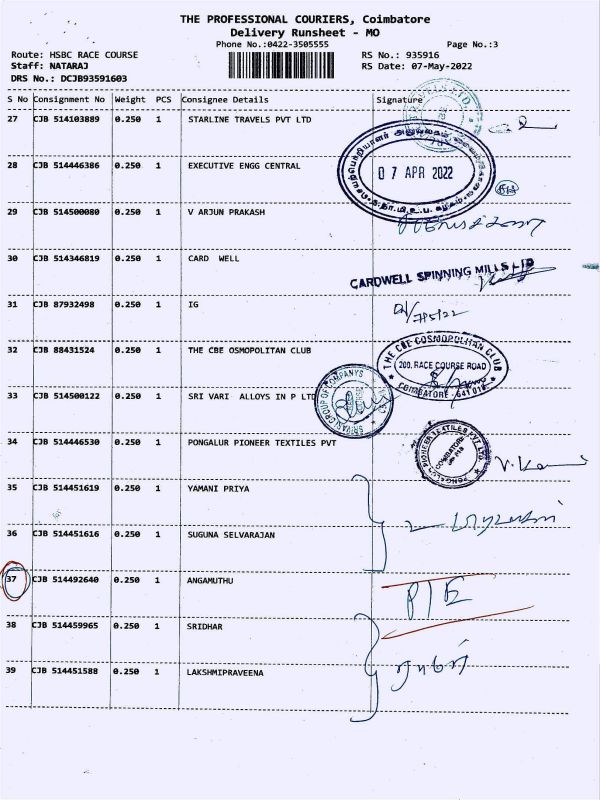 THE PROFESSIONAL COURIERS, Coimbatore
Delivery Runsheet - MO
Phone No.:0422-3505555
Page No.:3
Route: HSBC RACE COURSE
RS No.: 935916
Staff: NATARAJ
RS Date: 07-May-2022
DRS No.: DCJB93591603
S No Consignment No Weight PCS Consignee Details Signature
27 CJB 514103889 0.250 1 STARLINE TRAVELS PVT LTD
28 CJB 514446386 0.250 1 EXECUTIVE ENGG CENTRAL
0 7 APR 2022
29 CJB 514500080 0.250 1 V ARJUN PRAKASH
30 CJB 514346819 0.250 1 CARD WELL
CARDWELL SPINNING MILLS LTD
31 CJB 87932498 0.250 1 IG
7/5/22
32 CJB 88431524 0.250 1 THE CBE OSMOPOLITAN CLUB
THE CBE COSMOPOLITAN CLUB
200, RACE COURSE ROAD
COIMBATORE - 641 018
33 CJB 514500122 0.250 1 SRI VARI ALLOYS IN P LTD
SRIVARI GROUP OF COMPANYS
34 CJB 514446530 0.250 1 PONGALUR PIONEER TEXTILES PVT
PONGALUR PIONEER TEXTILES PVT. LTD.
COIMBATORE
35 CJB 514451619 0.250 1 YAMANI PRIYA
36 CJB 514451616 0.250 1 SUGUNA SELVARAJAN
37 CJB 514492640 0.250 1 ANGAMUTHU
38 CJB 514459965 0.250 1 SRIDHAR
39 CJB 514451588 0.250 1 LAKSHMIPRAVEENA